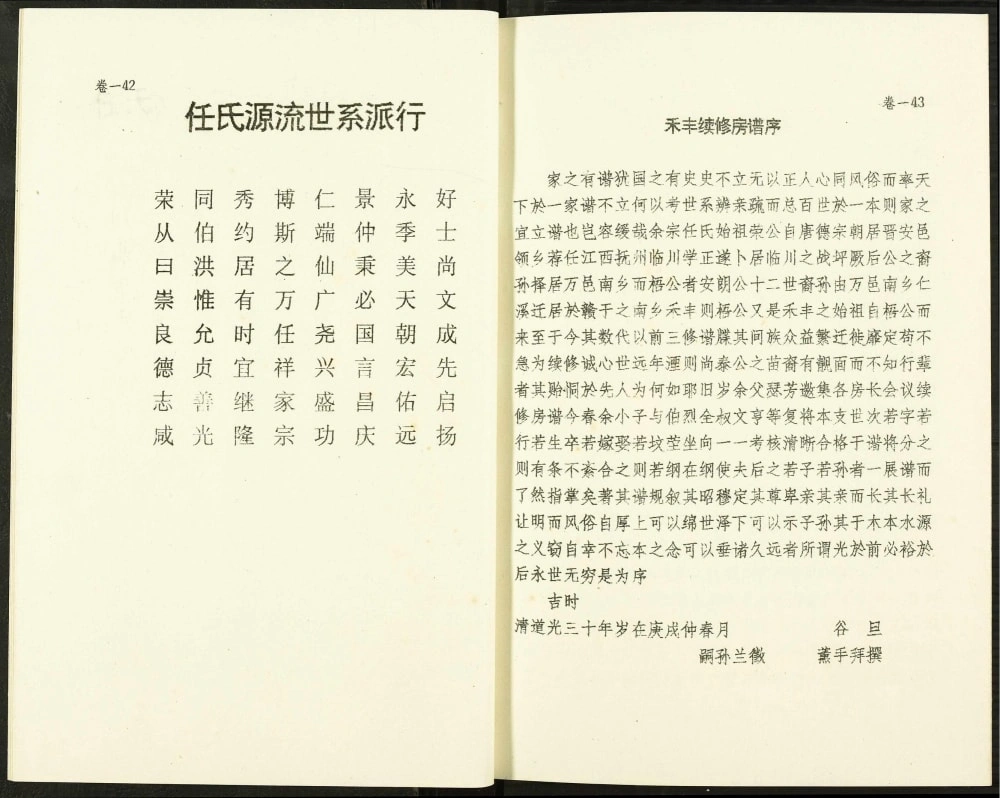 卷一42
任氏源流世系派行
荣同秀博仁景永好
从伯约斯端仲季士
曰洪居之仙秉美尚
崇惟有万广必天文
良允时任尧国朝成
德贞宜祥兴言宏先
志善继家盛昌佑启
咸光隆宗功庆远扬
卷一43
禾丰续修房谱序
家之有谱犹国之有史史不立无以正人心同风俗而率天
下於一家谱不立何以考世系辨亲疏而总百世於一本则家之
宜立谱也岂容缓哉余宗任氏始祖荣公自唐德宗朝居晋安邑
领乡荐任江西抚州临川学正遂卜居临川之战坪厥后公之裔
孙择居万邑南乡而梧公者安朗公十二世裔孙由万邑南乡仁
溪迁居於赣于之南乡禾丰则梧公又是禾丰之始祖自梧公而
来至于今其数代以前三修谱牒其间族众益繁迁徙靡定苟不
急为续修诚心世远年湮则尚泰公之苗裔有觌面而不知行辈
者其贻恫於先人为何如耶旧岁余父瑟芳邀集各房长会议续
修房谱今春余小子与伯烈全叔文亨等复将本支世次若字若
行若生卒若嫁娶若坟茔坐向一一考核清晰合格于谱将分之
则有条不紊合之则若纲在纲使夫后之若子若孙者一展谱而
了然指掌矣著其谱规叙其昭穆定其尊卑亲其亲而长其长礼
让明而风俗自厚上可以绵世泽下可以示子孙其于木本水源
之义窃自幸不忘本之念可以垂诸久远者所谓光於前必裕於
后永世无穷是为序
吉时
清道光三十年岁在庚戌仲春月 谷 旦
嗣孙兰徵 薰手拜撰